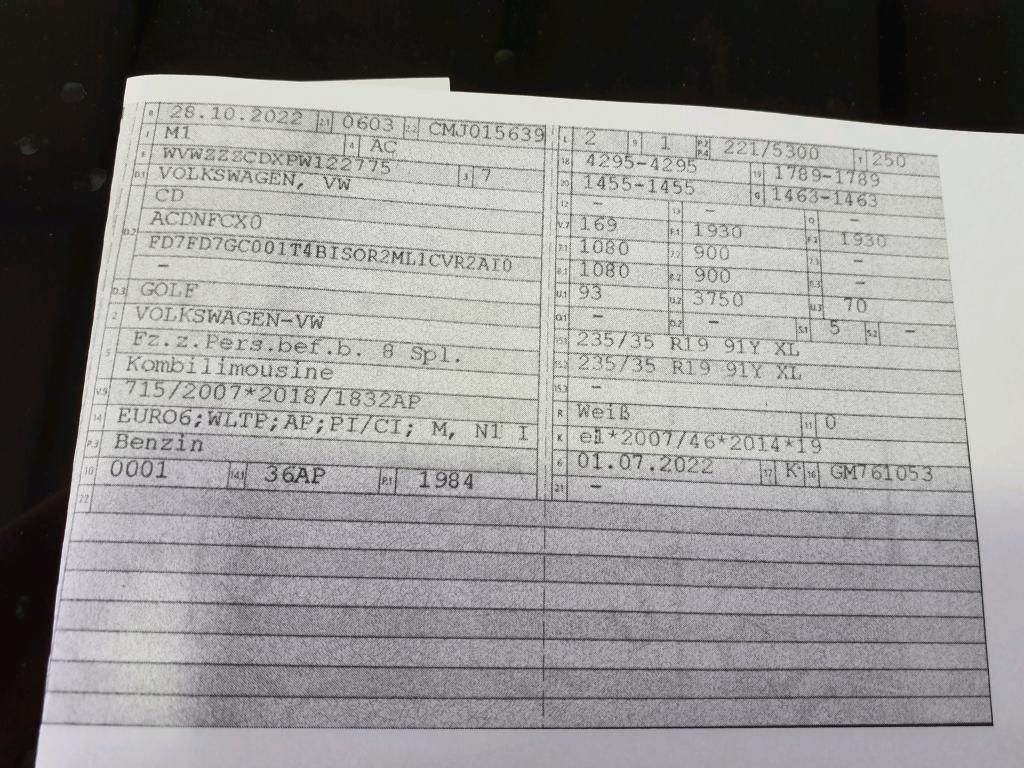 B 28.10.2022 2.1 0603 2.2 CMJ015639
J M1 4 AC
E WVWZZZCDXPW122775 3 7
D.1 VOLKSWAGEN, VW
CD
D.2 ACDNFCX0
FD7FD7GC001T4BISOR2ML1CVR2AI0
–
D.3 GOLF
2 VOLKSWAGEN-VW
5 Fz.z.Pers.bef.b. 8 Spl.
Kombilimousine
V.9 715/2007*2018/1832AP
14 EURO6;WLTP;AP;PI/CI; M, N1 I
P.3 Benzin
10 0001 14.1 36AP P.1 1984
22
L 2 9 1 P.2 P.4 221/5300 T 250
18 4295-4295 19 1789-1789
20 1455-1455 G 1463-1463
12 – 13 – Q –
V.7 169 F.1 1930 F.2 1930
7.1 1080 7.2 900 7.3 –
8.1 1080 8.2 900 8.3 –
U.1 93 U.2 3750 U.3 70
O.1 – O.2 – S.1 5 S.2 –
15.1 235/35 R19 91Y XL
15.2 235/35 R19 91Y XL
15.3 –
R Weiß 11 0
K e1*2007/46*2014*19
6 01.07.2022 17 K 16 GM761053
21 –